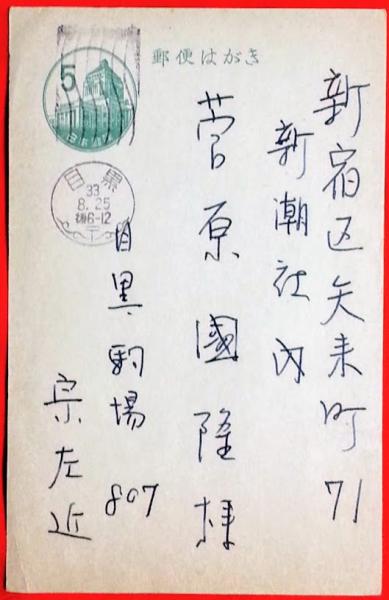 郵便はがき
5
日本郵便
目黒
33
8.25
後6-12
新宿区矢来町71
新潮社内
菅原國隆様
目黒駒場807
宗左近